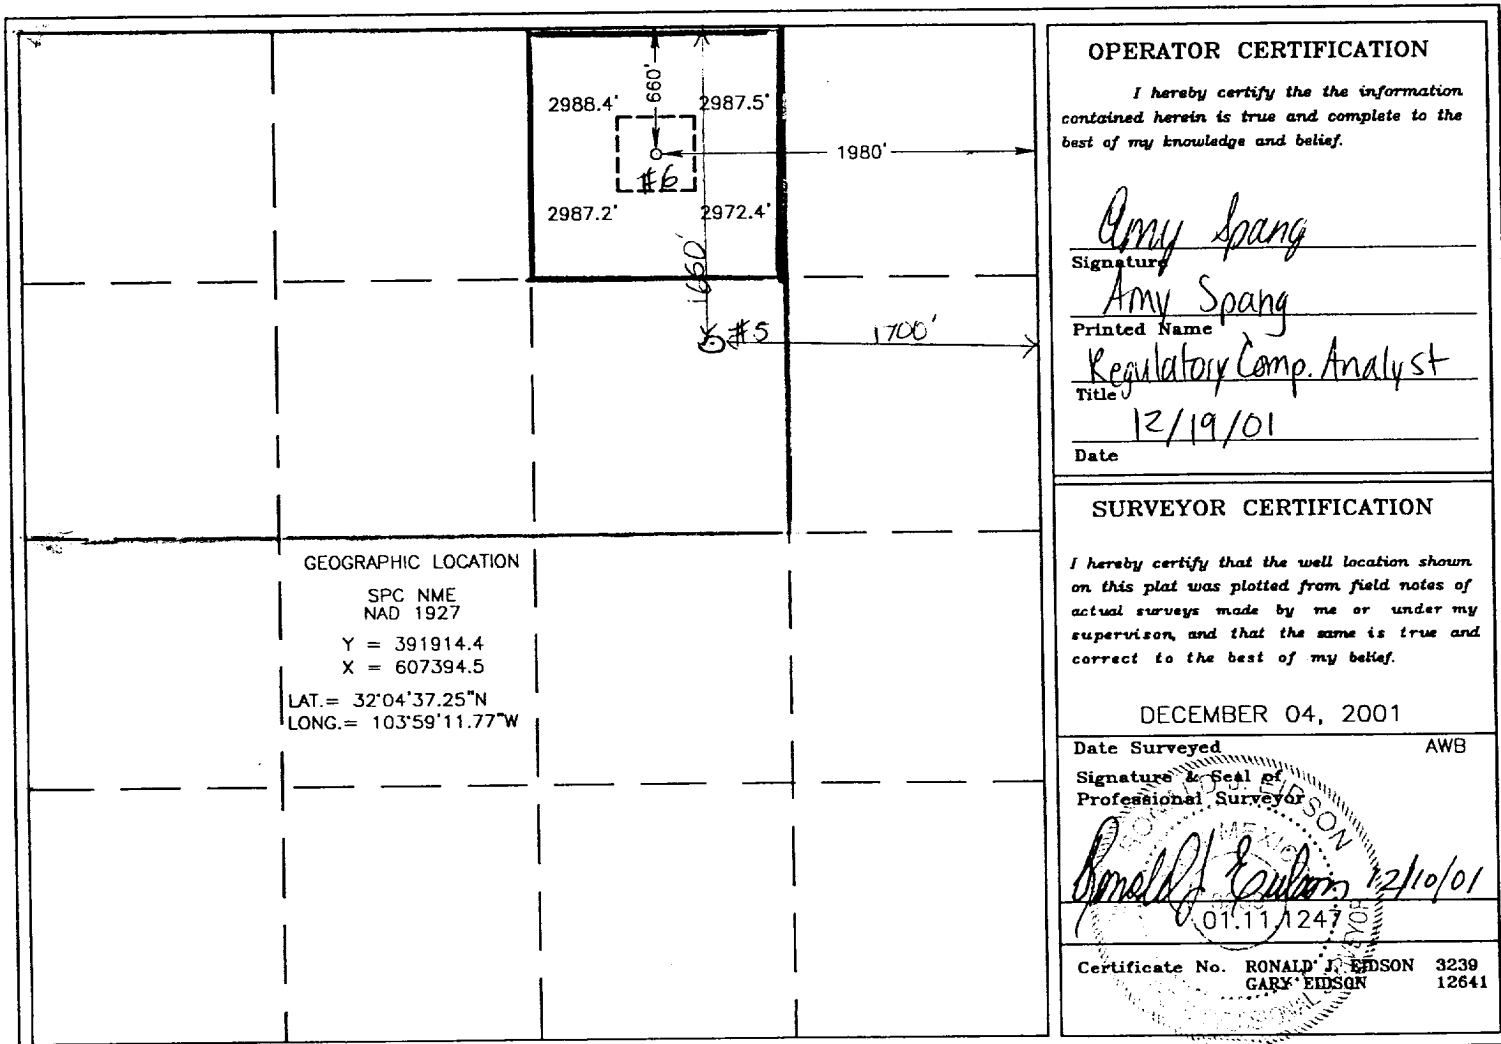 660'
2988.4'
2987.5'
1980'
#6
2987.2'
2972.4'
1660'
#5
1700'
GEOGRAPHIC LOCATION
SPC NME
NAD 1927
Y = 391914.4
X = 607394.5
LAT.= 32°04'37.25"N
LONG.= 103°59'11.77"W
OPERATOR CERTIFICATION
I hereby certify the the information
contained herein is true and complete to the
best of my knowledge and belief.
Amy Spang
Signature
Amy Spang
Printed Name
Regulatory Comp. Analyst
Title
12/19/01
Date
SURVEYOR CERTIFICATION
I hereby certify that the well location shown
on this plat was plotted from field notes of
actual surveys made by me or under my
supervison, and that the same is true and
correct to the best of my belief.
DECEMBER 04, 2001
Date Surveyed AWB
Signature & Seal of
Professional Surveyor
RONALD J. EIDSON
MEXICO
Ronald J Eidson 12/10/01
01.11.1247
Certificate No. RONALD J. EIDSON 3239
GARY EIDSON 12641
PROFESSIONAL SURVEYOR